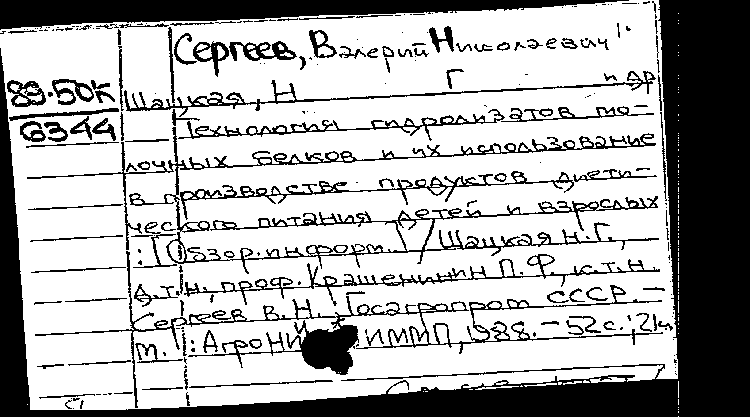 Сергеев, Валерий Николаевич
89-50К Шацкая, Н Г и др
6344 Технология гидролизатов мо-
лочных белков и их использование
в производстве продуктов диети-
ческого питания детей и взрослых
: [Обзор. информ.] / Шацкая Н.Г.,
д.т.н., проф. Крашенинин П.Ф., к.т.н.
Сергеев В.Н.; Госагропром СССР. –
М.: АгроНИ ИММП, 1988. – 52 с.;